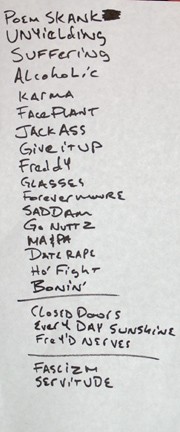 POEM SKANK
UNYIELDING
SUFFERING
ALCOHOLIC
KARMA
FACEPLANT
JACKASS
GIVE IT UP
FREDDY
GLASSES
FOREVERMORE
SADDAM
GO NUTTZ
MA&PA
DATE RAPE
HO' FIGHT
BONIN'
CLOSED DOORS
EVERYDAY SUNSHINE
FREY'D NERVES
FASCIZM
SERVITUDE